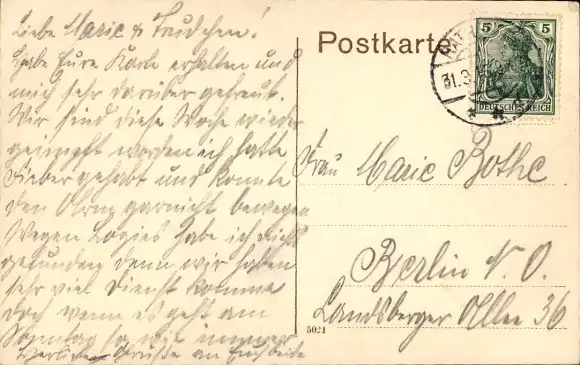 Liebe Marie & Trudchen!
Habe Eure Karte erhalten und
mich sehr darüber gefreut.
Wir sind diese Woche wieder
geimpft worden ich hatte
Fieber gehabt und konnte
den Arm garnicht bewegen
Wegen Logies habe ich nicht
gefunden denn wir haben
sehr viel Dienst komme
doch wenn es geht am
Sonntag so wie immer
Herzliche Grüße an Euch beide
Postkarte
5 5
DEUTSCHES REICH
31.3.
Frau Marie Bothe
Berlin N.O.
Landsberger Allee 36
5021